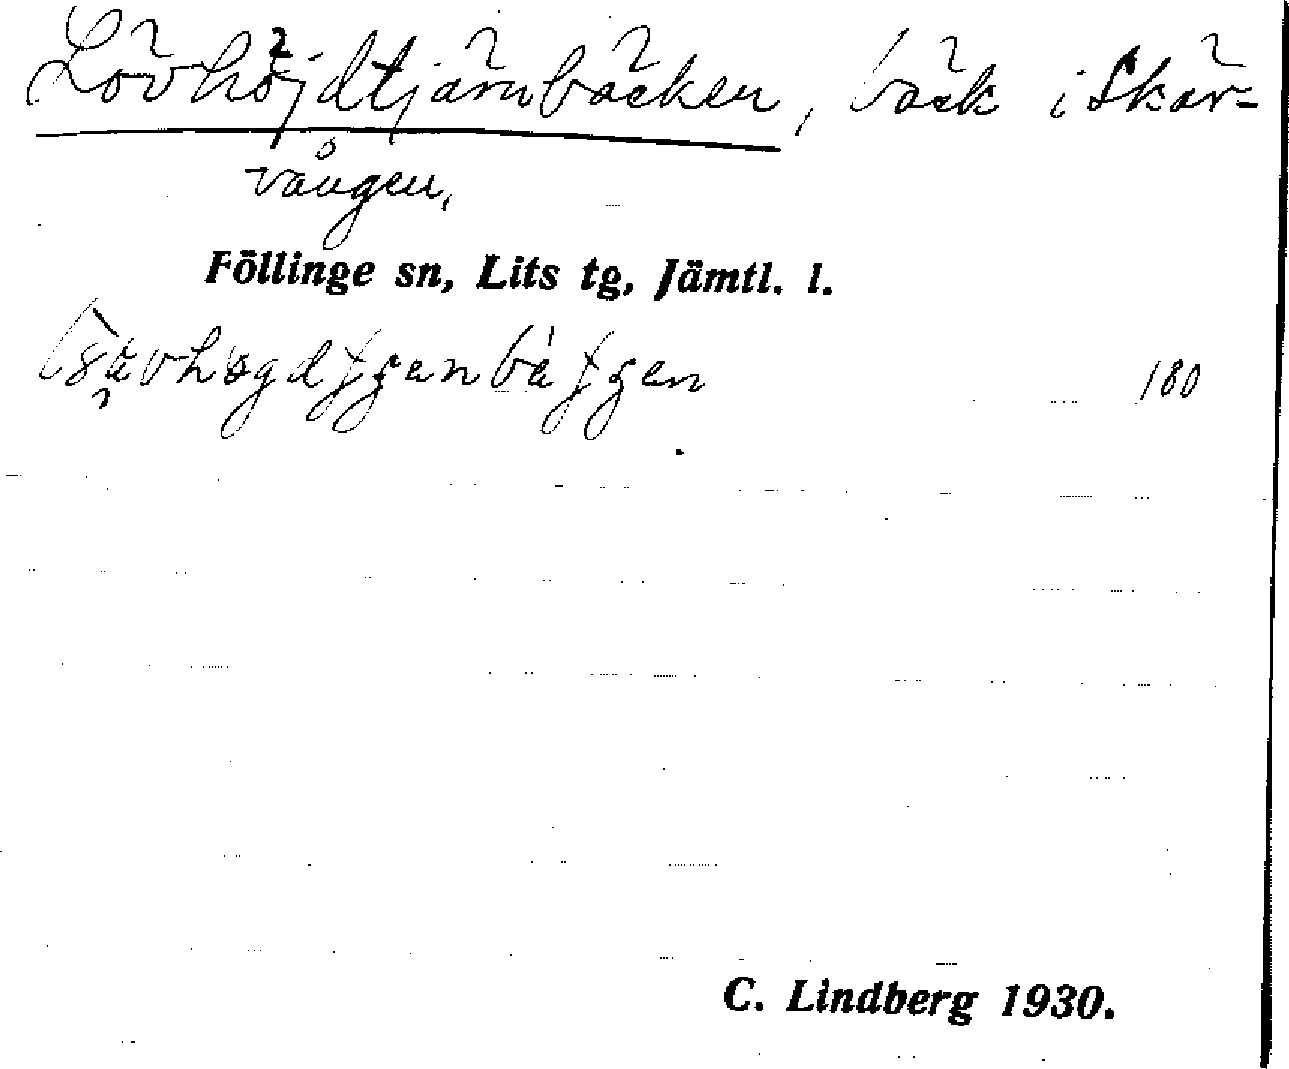 Lövhöjdtjärnbäcken, bäck i Skär-
vången.
Föllinge sn, Lits tg, Jämtl. l.
180
C. Lindberg 1930.